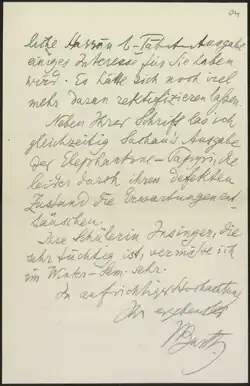 liche Hassân b. Tâbit-Ausgabe
einiges Interesse für Sie haben
wird. Es hätte sich noch viel
mehr daran rektifizieren lassen.
Neben Ihrer Schrift las ich
gleichzeitig Sachau's Ausgabe
der Elephantine-Papyri, die
leider durch ihren defekten
Zustand die Erwartungen ent
täuschen.
Ihre Schülerin Insinger, die
sehr tüchtig ist, vermisse ich
im Winter-Sem. sehr.
In aufrichtiger Hochachtung
Ihr ergebenster
Barth